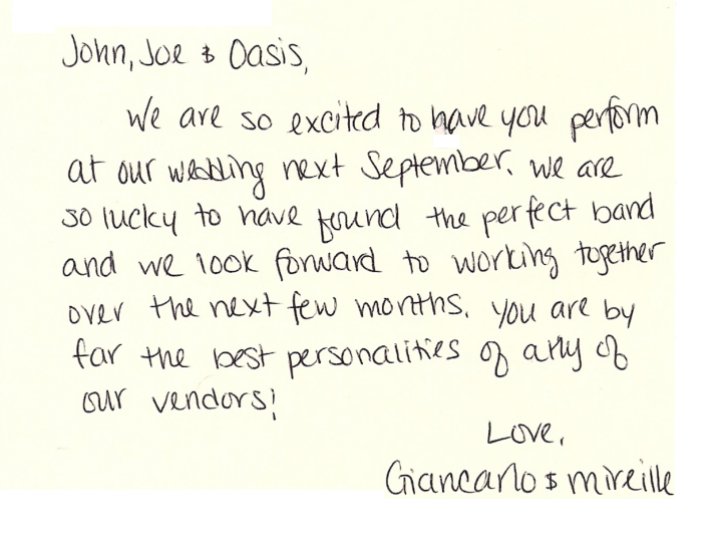 John, Joe & Oasis,
We are so excited to have you perform
at our wedding next September. We are
so lucky to have found the perfect band
and we look forward to working together
over the next few months. You are by
far the best personalities of any of
our vendors!
Love,
Giancarlo & Mireille